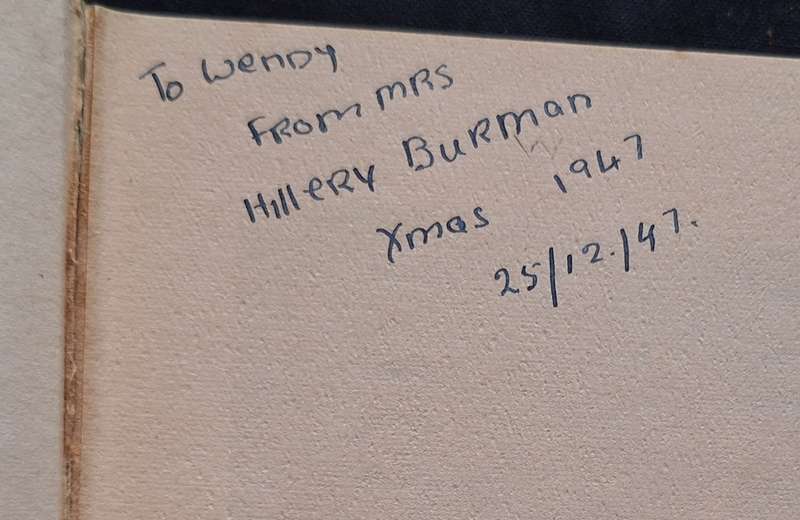 To WenDy
FROM MRS
HillERY BuRman
Xmas 1947
25/12./47.